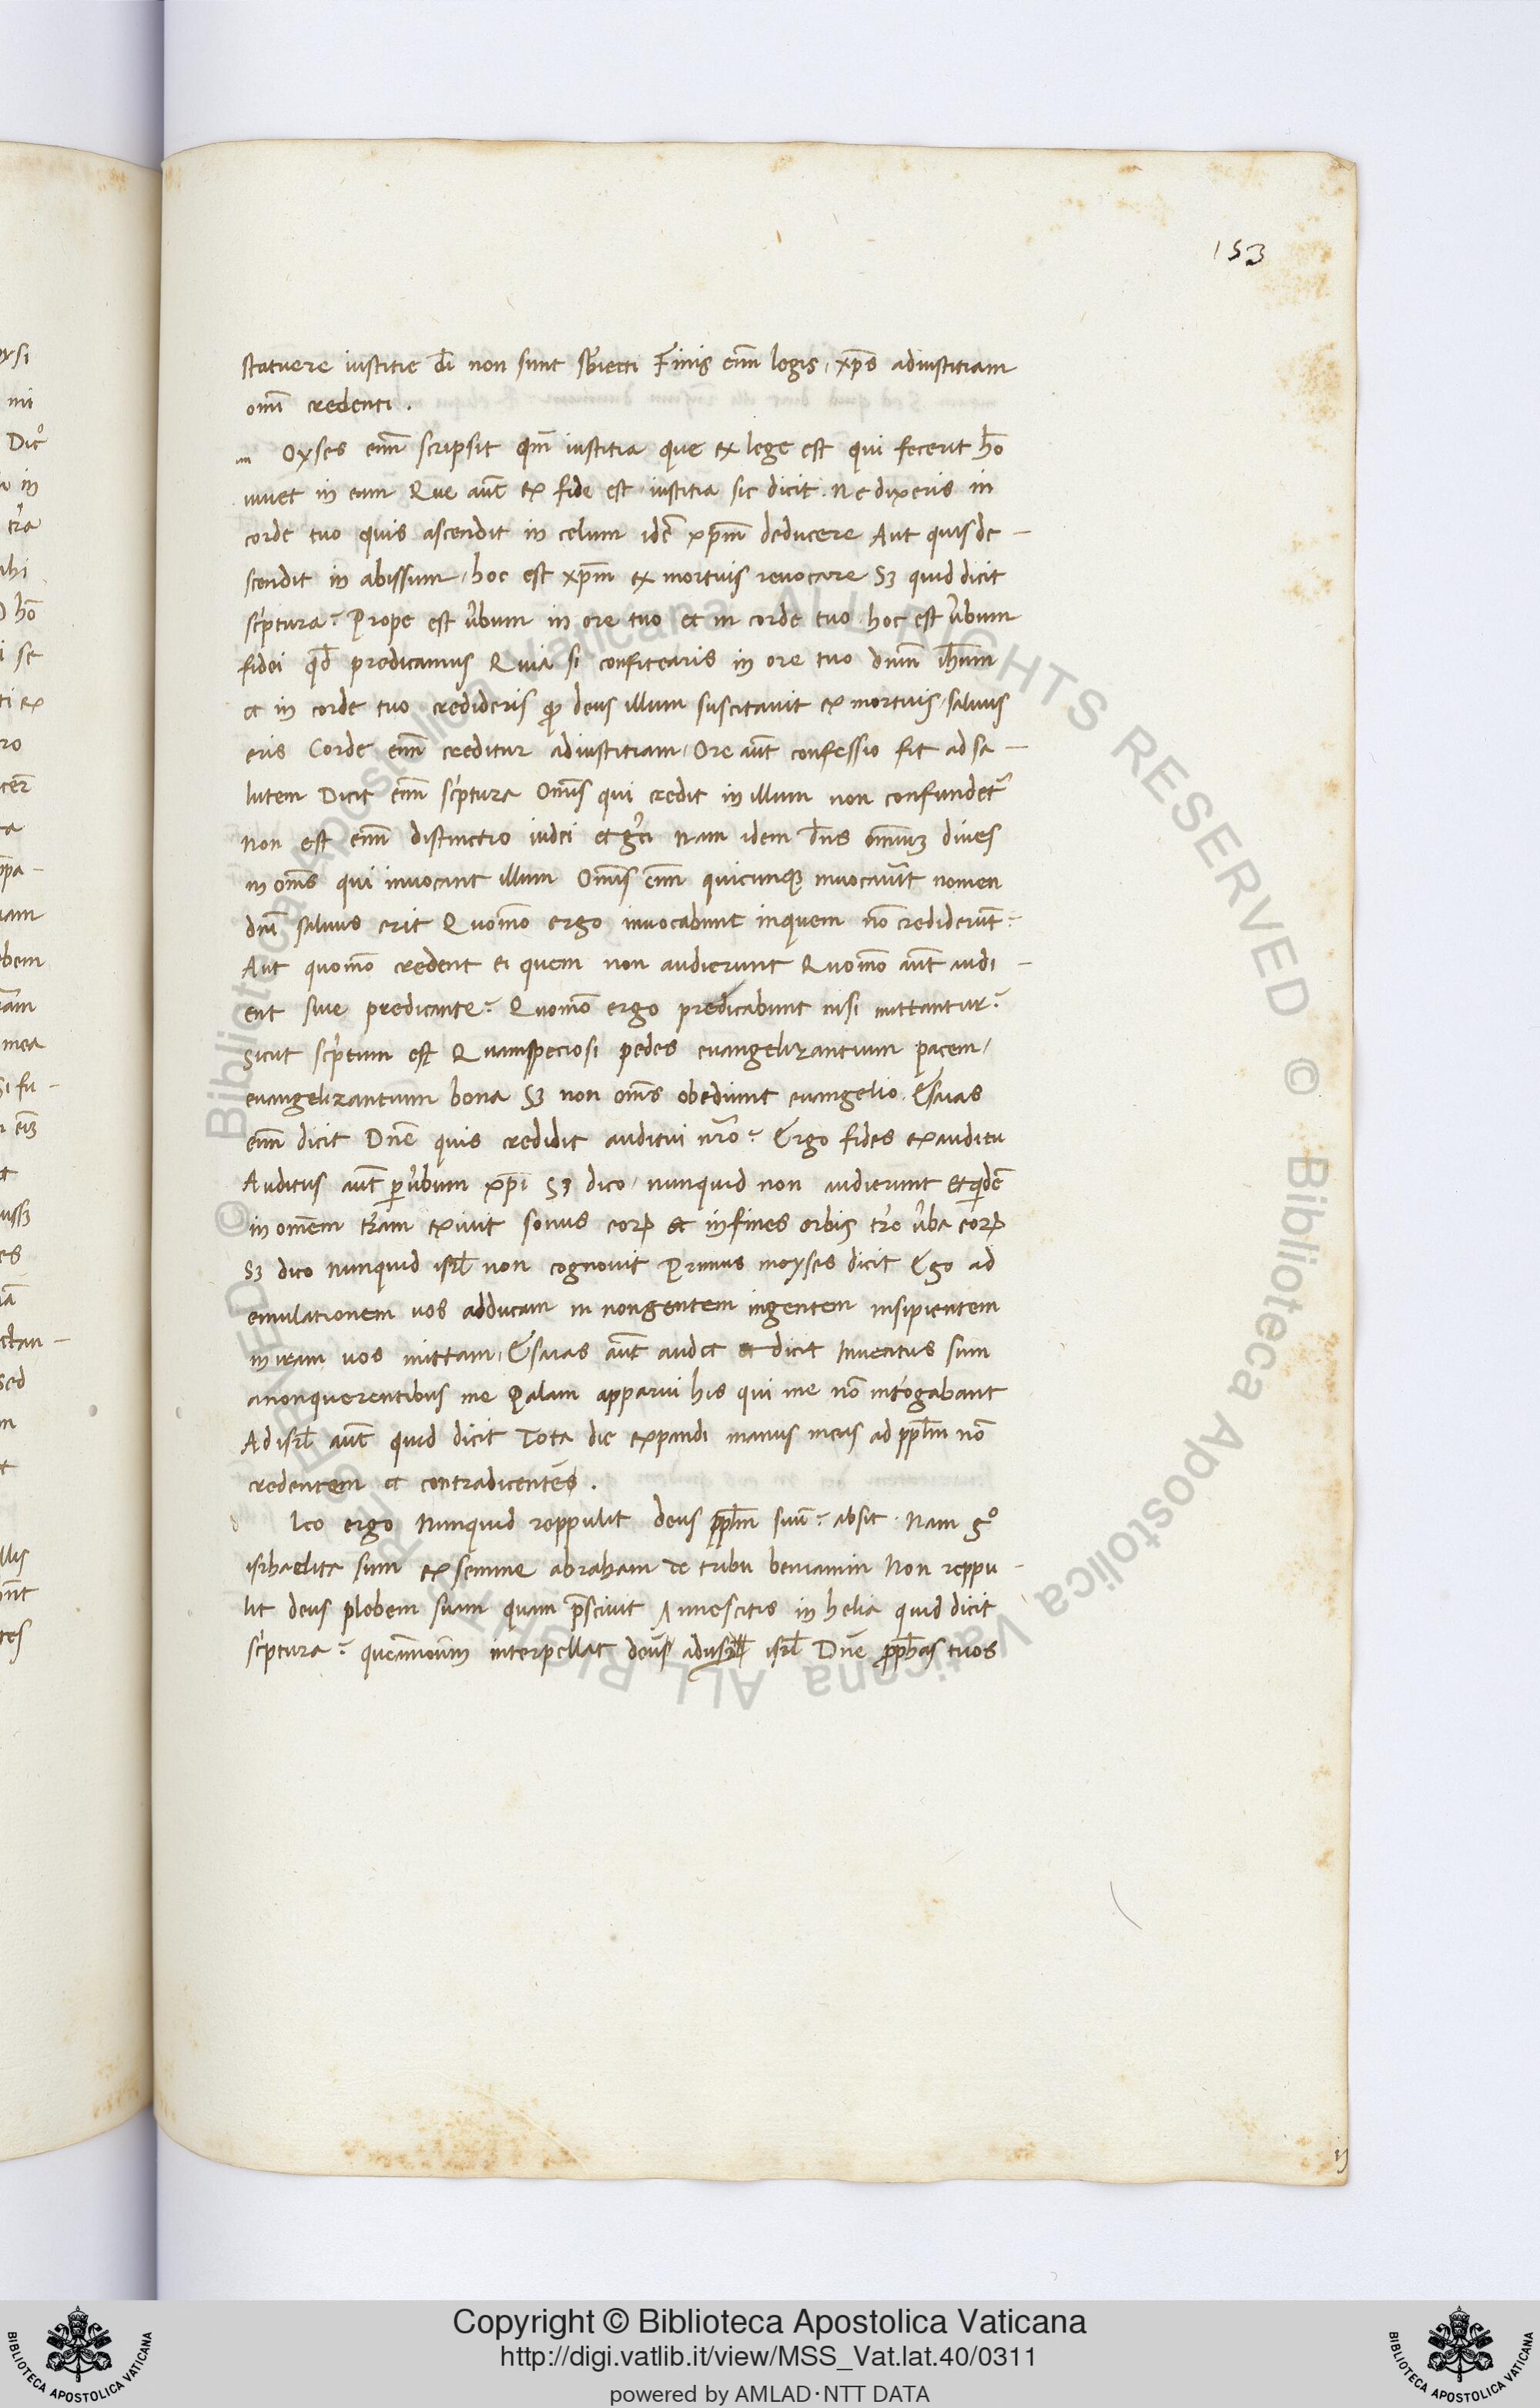 153
statuere iustitie dī non sunt sb̄iecti Finis enī legis, xp̄s adiustitiam
omī credenti.
m Oyses enī scripsit qm̄ iustitia que ex lege est qui fecerit hō
uiuet in eam Que aut̄ ex fide est iustitia sic dicit. Ne dixeris in
corde tuo quis ascendit in celum idē xp̄m deducere Aut quis de-
scendit in abissum, hoc est xp̄m ex mortuis reuocare Sꝫ quid dicit
scͥptura? Prope est ūbum in ore tuo et in corde tuo hoc est ūbum
fidei qd̄ predicamus Quia si confitearis in ore tuo dnm̄ ih̄um
et in corde tuo credideris ꝙ deus illum suscitauit ex mortuis, saluus
eris Corde enī creditur adiustitiam, Ore aut̄ confessio fit ad sa-
lutem Dicit enī scͥptura Omīs qui credit in illum non confundet᷑
Non est enī distinctio iudei et gͥci Nam idem dn̄s omīuꝫ diues
in omīs qui inuocant illum Omīs enī quicunqꝫ inuocaūit nomen
dnī saluus erit Quomō ergo inuocabunt inquem nō crediderūt?
Aut quomō credent ei quem non audierunt Quomō aut̄ audi-
ent siue predicante? Quomō ergo predicabunt nisi mittantur?
Sicut scͥptum est Quamspeciosi pedes euangelizantium pacem,
euangelizantium bona Sꝫ non omīs obediunt euangelio. Esaias
enī dicit Dnē quis credidit auditui nr̄o? Ergo fides exauditu
Auditus aut̄ ꝑūbum xp̄i Sꝫ dico, nunquid non audierunt Et qͥdē
in omēm tr̄am exiuit sonus eoꝝ et infines orbis tr̄e ūba eoꝝ
Sꝫ dico Nunquid isrl̄ non cognouit Primus moyses dicit Ego ad
emulationem uos adducam in nongentem ingentem insipientem
in iram uos mittam, Esaias aut̄ audet et dicit Inuentus sum
anonquerentibus me Palam apparui his qui me nō int̄ogabant
Ad isrl̄ aut̄ quid dicit Tota die expandi manus meas ad ppl̄m nō
credentem et contradicentēs.
d Ico ergo Nunquid reppulit deus ppl̄m suū? absit. Nam gͦ
isrhaelita sum ex semine abraham de tribu beniamin Non reppu-
lit deus plebem suam quam p̄sciuit Annescitis in helia quid dicit
scͥptura? queammoum̄ interpellat deūs adus isrl̄ Dnē pph̄as tuos
Copyright © Biblioteca Apostolica Vaticana
http://digi.vatlib.it/view/MSS_Vat.lat.40/0311
powered by AMLAD·NTT DATA